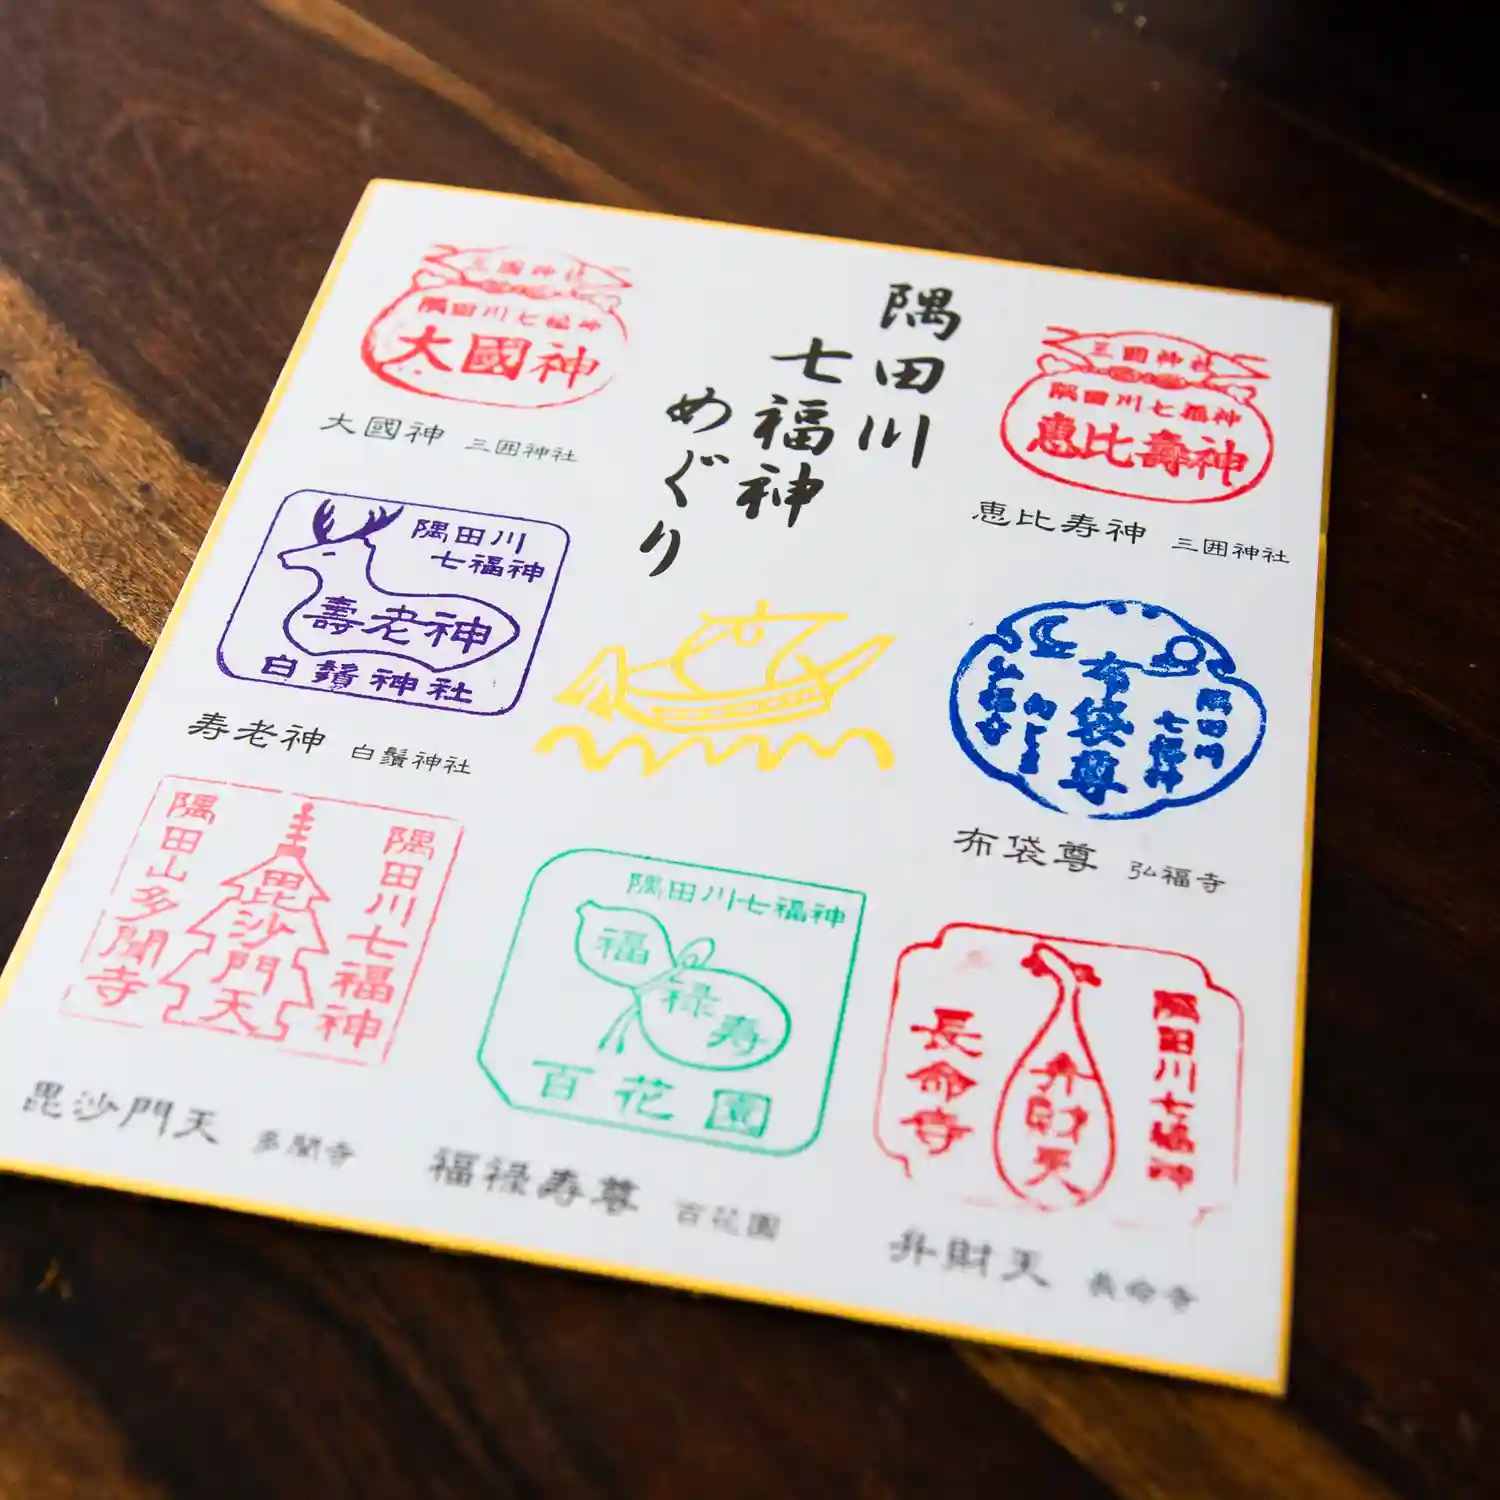 隅田川
七福神
めぐり
三囲神社
隅田川七福神
恵比壽神
恵比寿神 三囲神社
三囲神社
隅田川七福神
大國神
大國神 三囲神社
隅田川
七福神
壽老神
白鬚神社
寿老神 白鬚神社
隅田川
七福神
布袋尊
弘福寺
布袋尊 弘福寺
隅田川七福神
毘沙門天
隅田山多聞寺
毘沙門天 多聞寺
隅田川七福神
福
禄寿
百花園
福禄寿尊 百花園
隅田川七福神
弁財天
長命寺
弁財天 長命寺